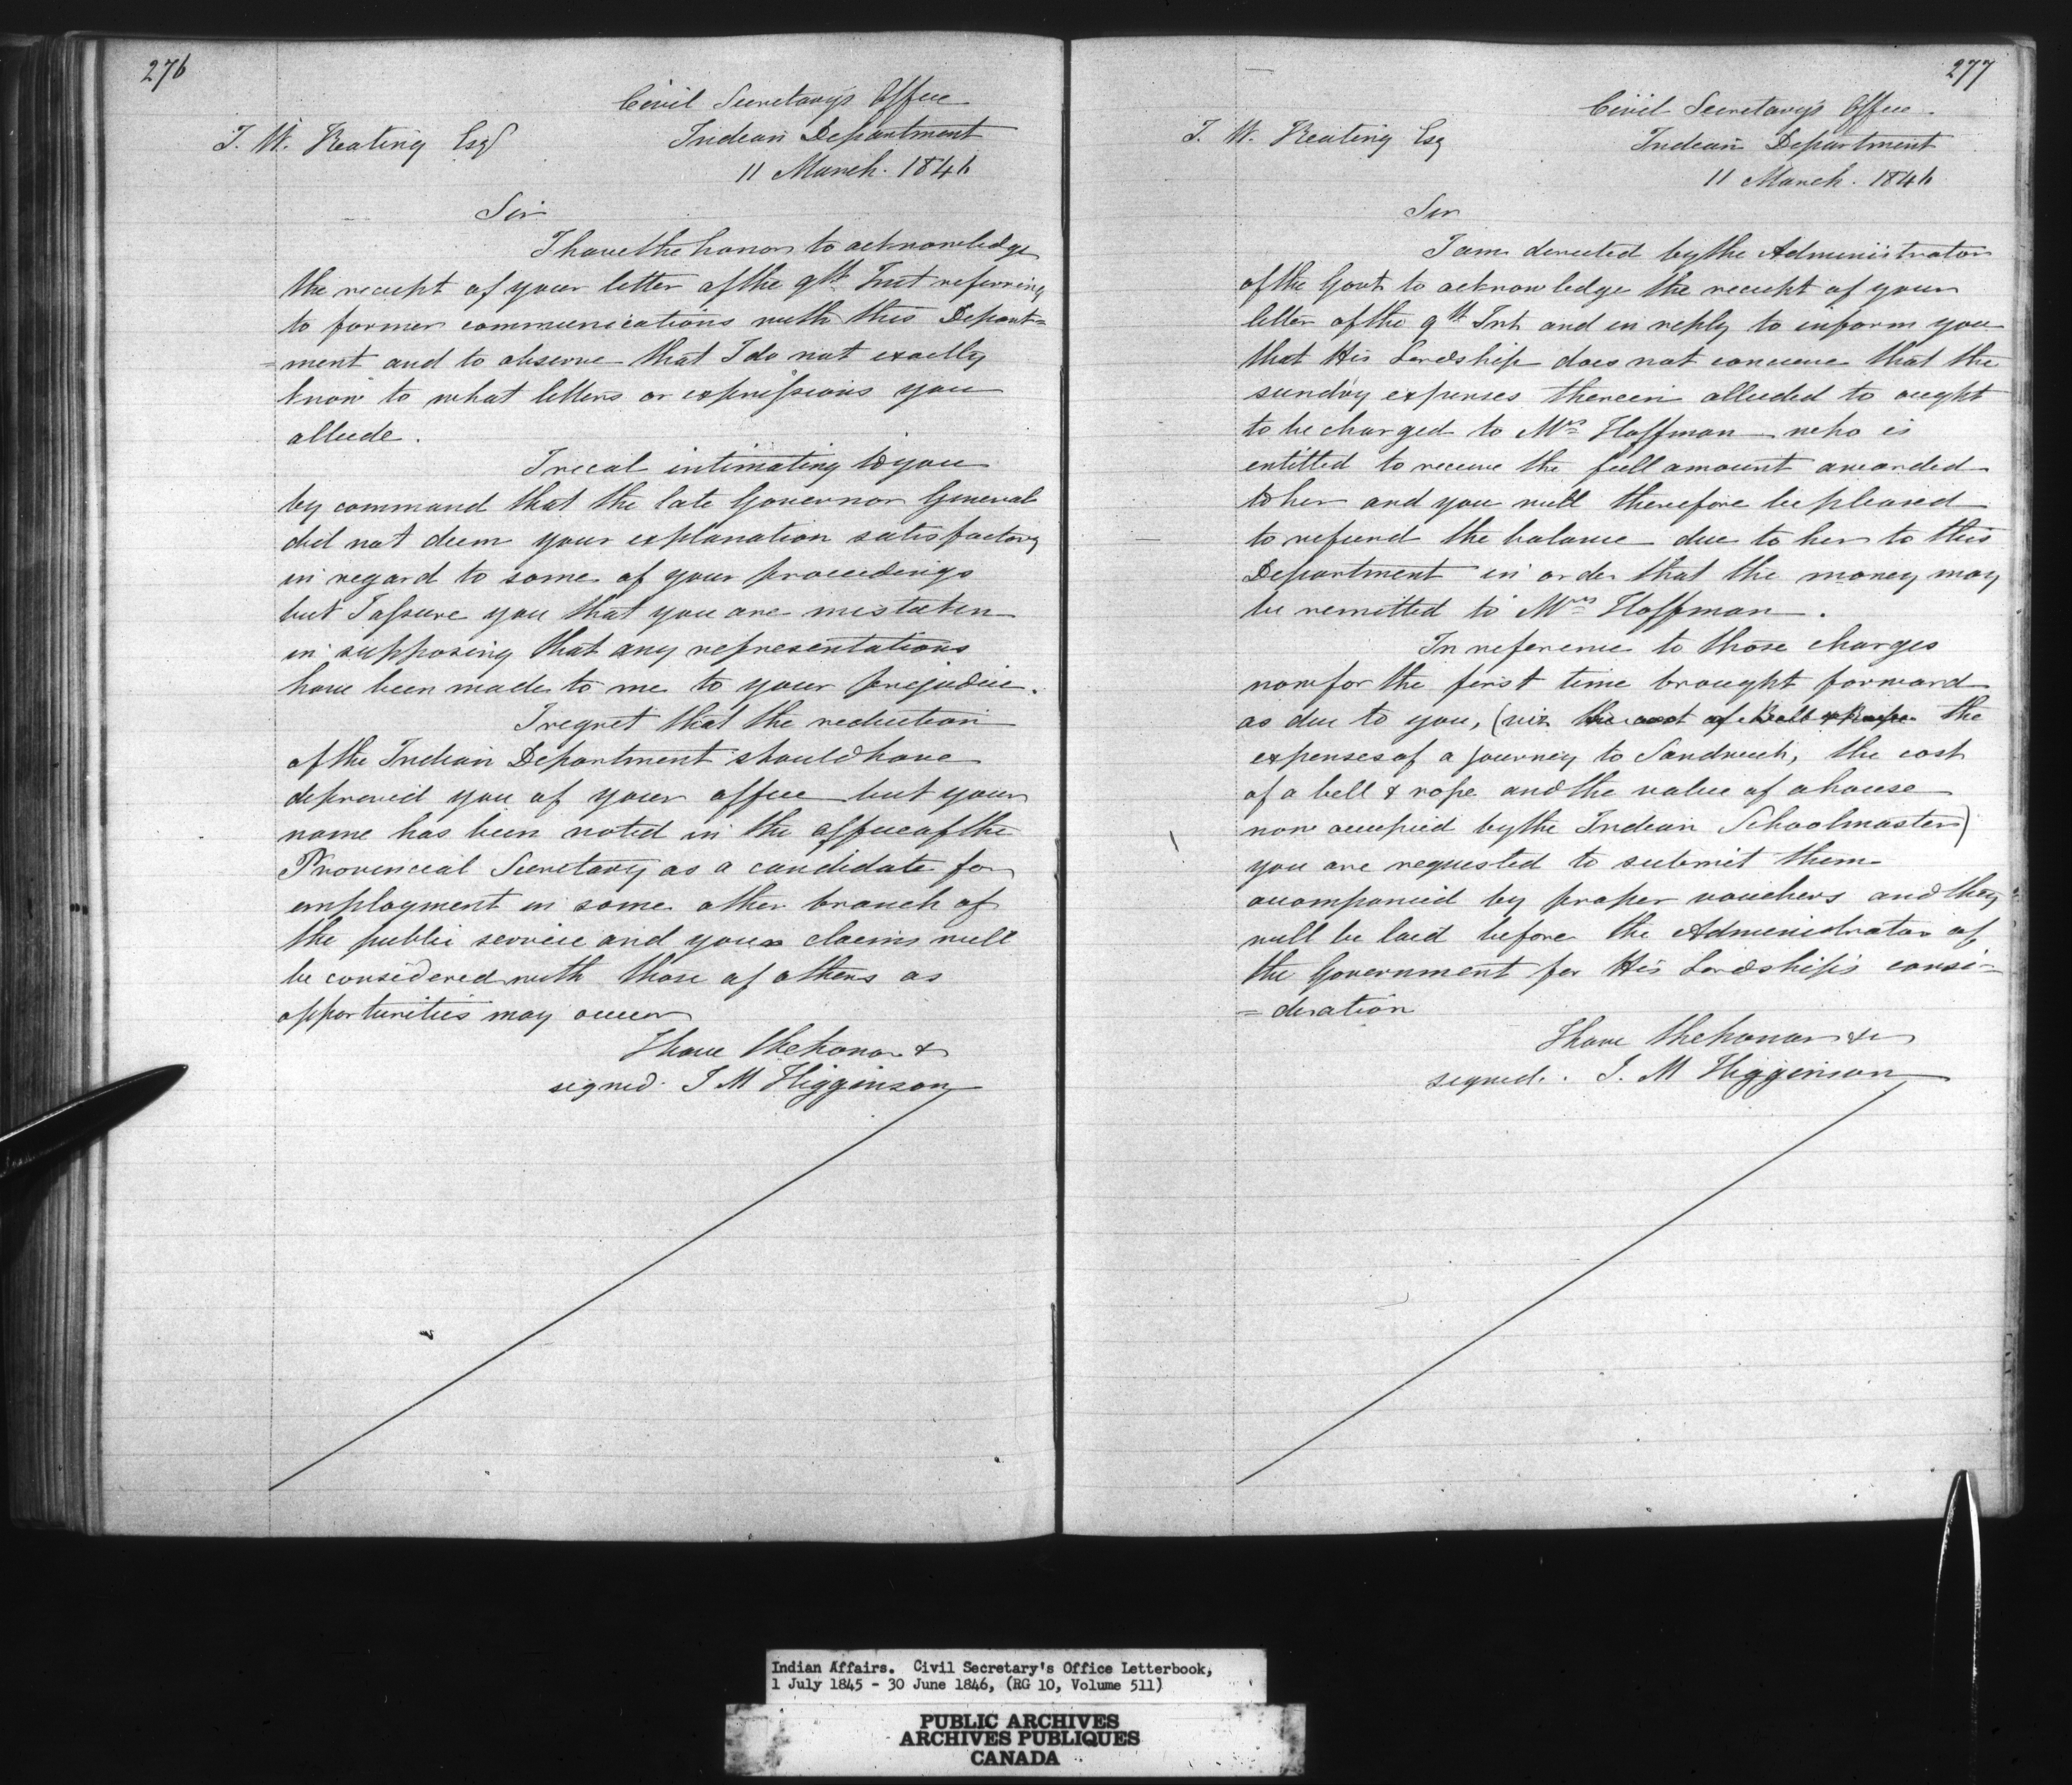 276
Civil Secretary's Office
J. W. Keating Esq
Indian Department
11 March. 1846
Sir
I have the honor to acknowledge
the receipt of your letter of the 9th Inst referring
to former communications with this Depart=
=ment and to observe that I do not exactly
know to what letters or expressions you
allude.
I recal intimating to you
by command that the late Governor General
did not deem your explanation satisfactory
in regard to some of your proceedings
but I assure you that you are mistaken
in supposing that any representations
have been made to me to your prejudice.
I regret that the reduction
of the Indian Department should have
deprived you of your office but your
name has been noted in the office of the
Provincial Secretary as a candidate for
employment in some other branch of
the public service and your claims will
be considered with those of others as
opportunities may occur
I have the honor &
signed. J M Higginson
277
Civil Secretary's Office.
J. W. Keating Esq
Indian Department
11 March. 1846
Sir
I am directed by the Administrator
of the Govt to acknowledge the receipt of your
letter of the 9th Int and in reply to inform you
that His Lordship does not conceive that the
sundry expenses therein alluded to ought
to be charged to Mrs Hoffman who is
entitled to receive the full amount awarded
to her and you will therefore be pleased
to refund the balance due to her to this
Department in order that the money may
be remitted to Mrs Hoffman.
In reference to those charges
now for the first time brought forward
as due to you, (viz the cost of Bell & Rope the
expenses of a journey to Sandwich, the cost
of a bell & rope and the value of a house
now occupied by the Indian Schoolmaster)
you are requested to submit them
accompanied by proper vouchers and they
will be laid before the Administrator of
the Government for His Lordship's consi=
=deration
I have the honor &c
signed. J. M Higginson
Indian Affairs. Civil Secretary's Office Letterbook,
1 July 1845 - 30 June 1846, (RG 10, Volume 511)
PUBLIC ARCHIVES
ARCHIVES PUBLIQUES
CANADA